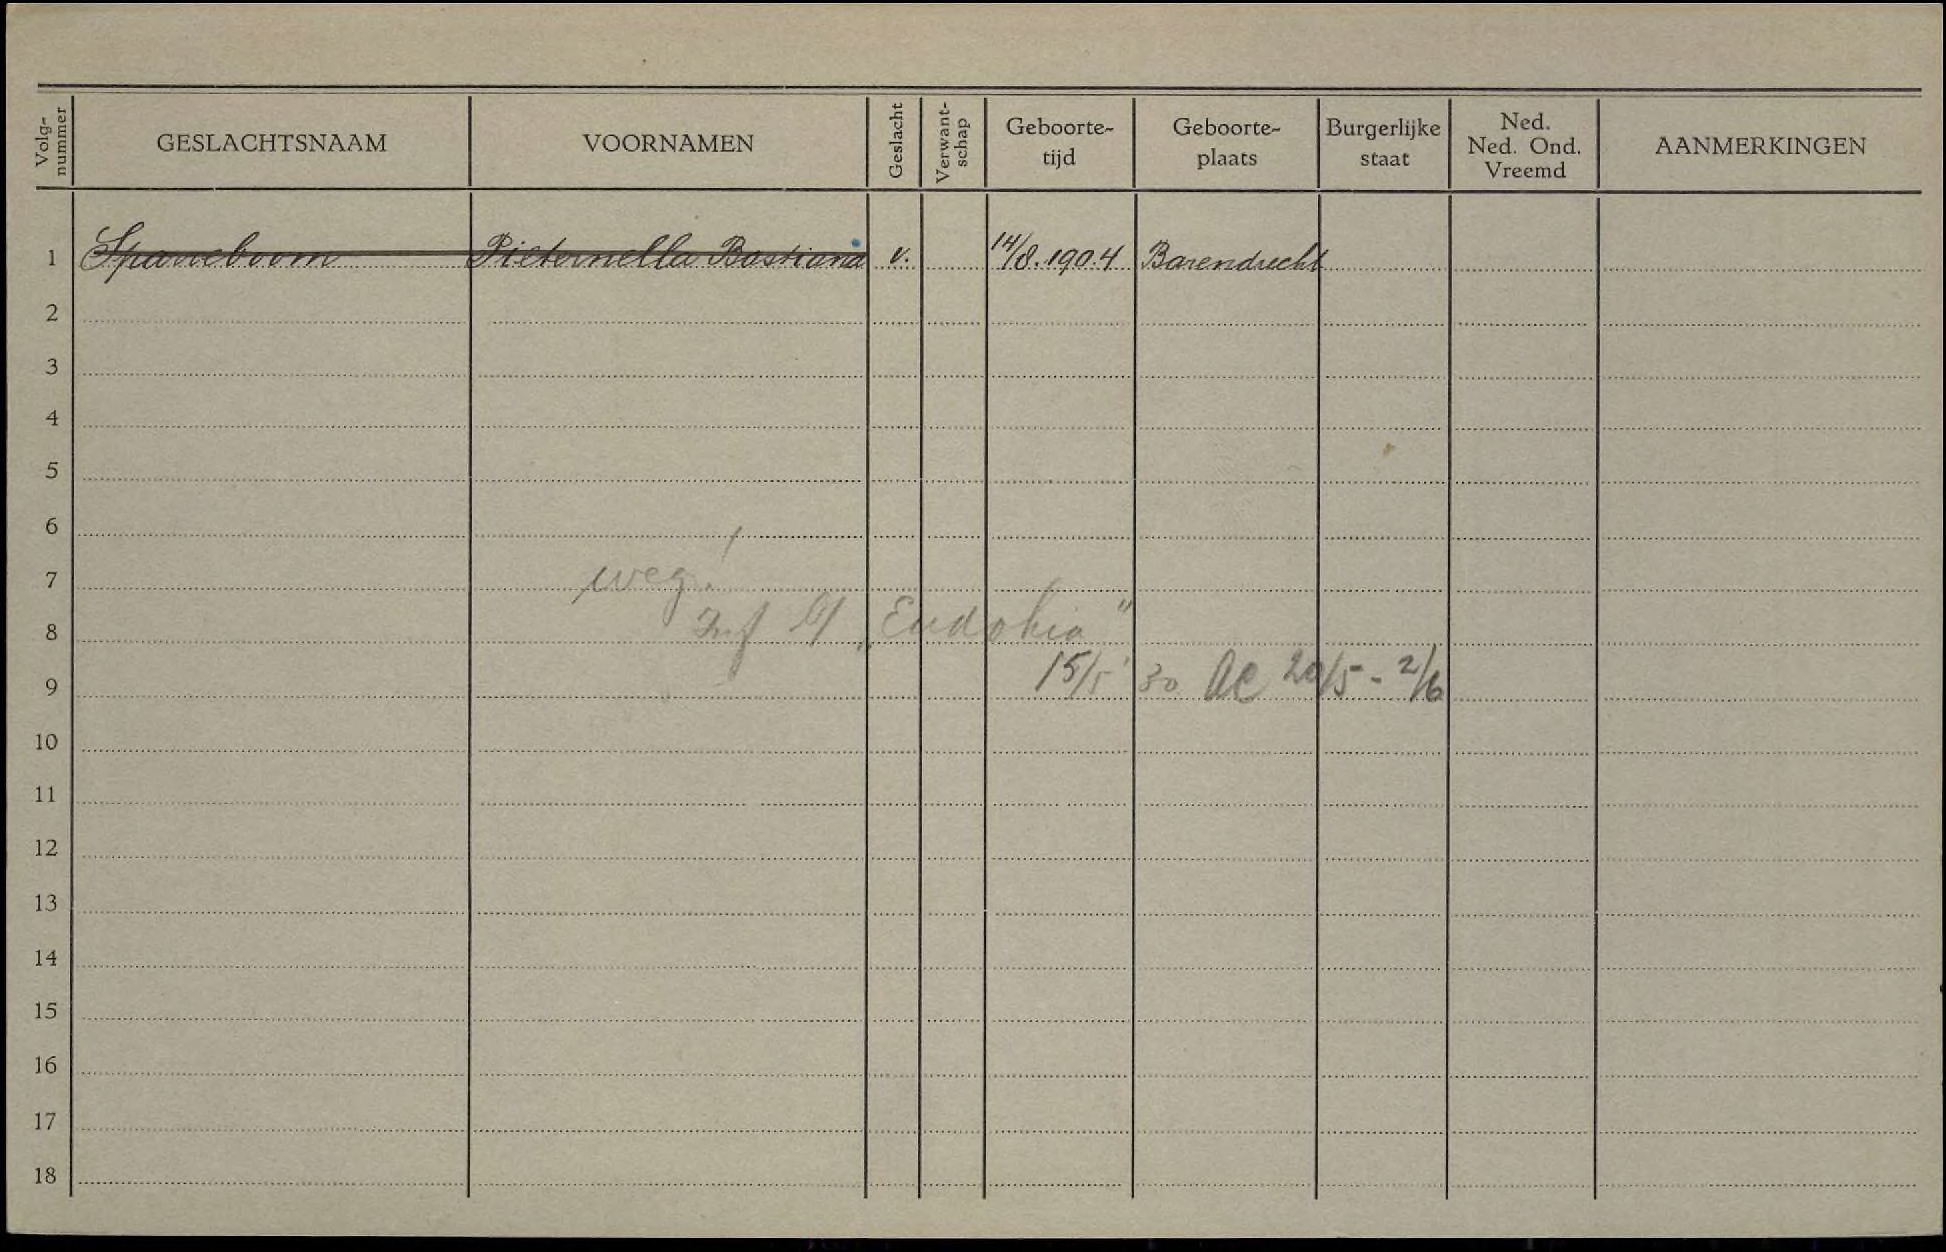 Volg-nummer GESLACHTSNAAM VOORNAMEN Geslacht Verwant-schap Geboorte-tijd Geboorte-plaats Burgerlijke staat Ned. Ned. Ond. Vreemd AANMERKINGEN
1 Sparreboom Pieternella Bastiana v. 14/8.1904 Barendrecht
2
3
4
5
6
7 weg!
8 Inf b/ „Eudokia"
9 15/5 30 AC 20/5 - 2/6
10
11
12
13
14
15
16
17
18